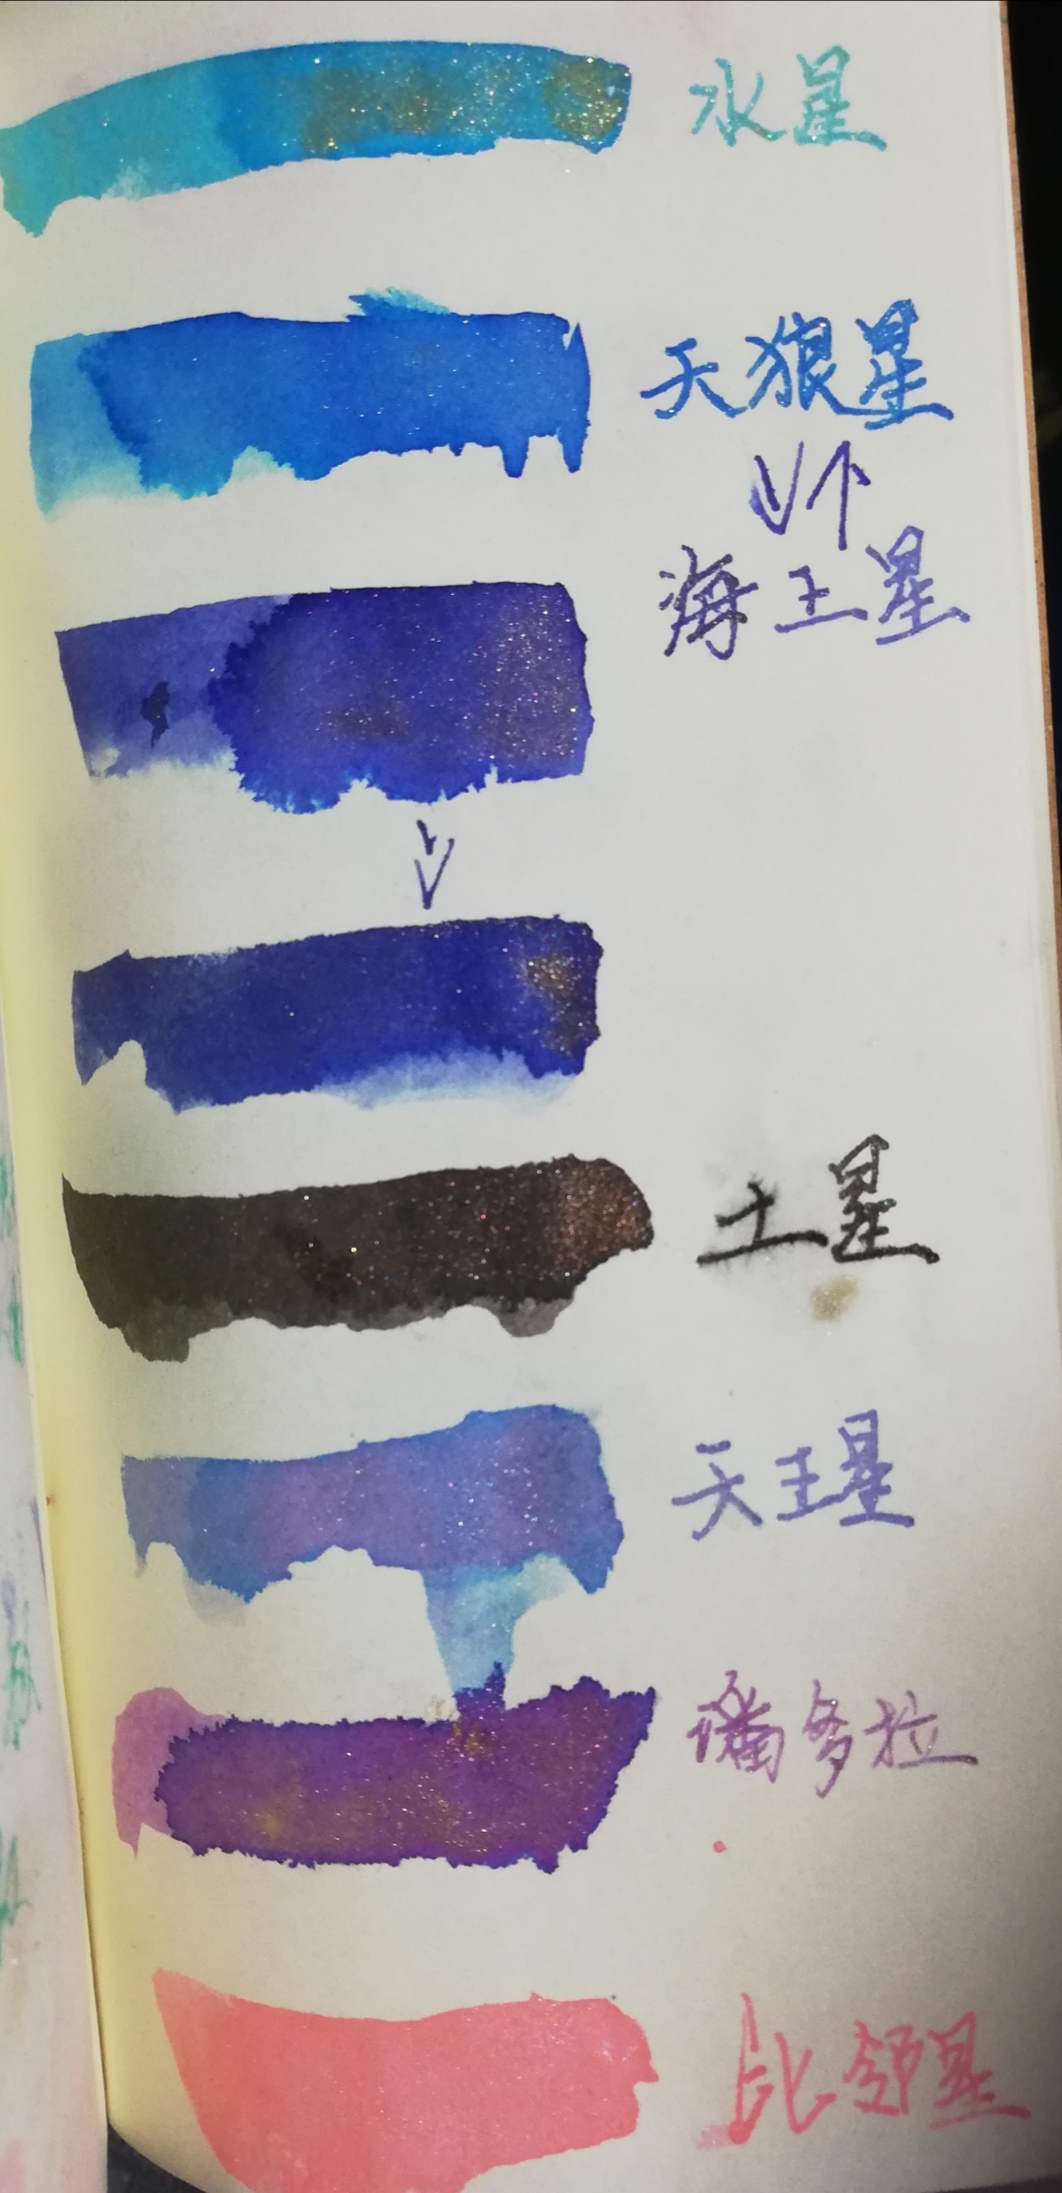 水星
天狼星
海王星
土星
天王星
潘多拉
比邻星